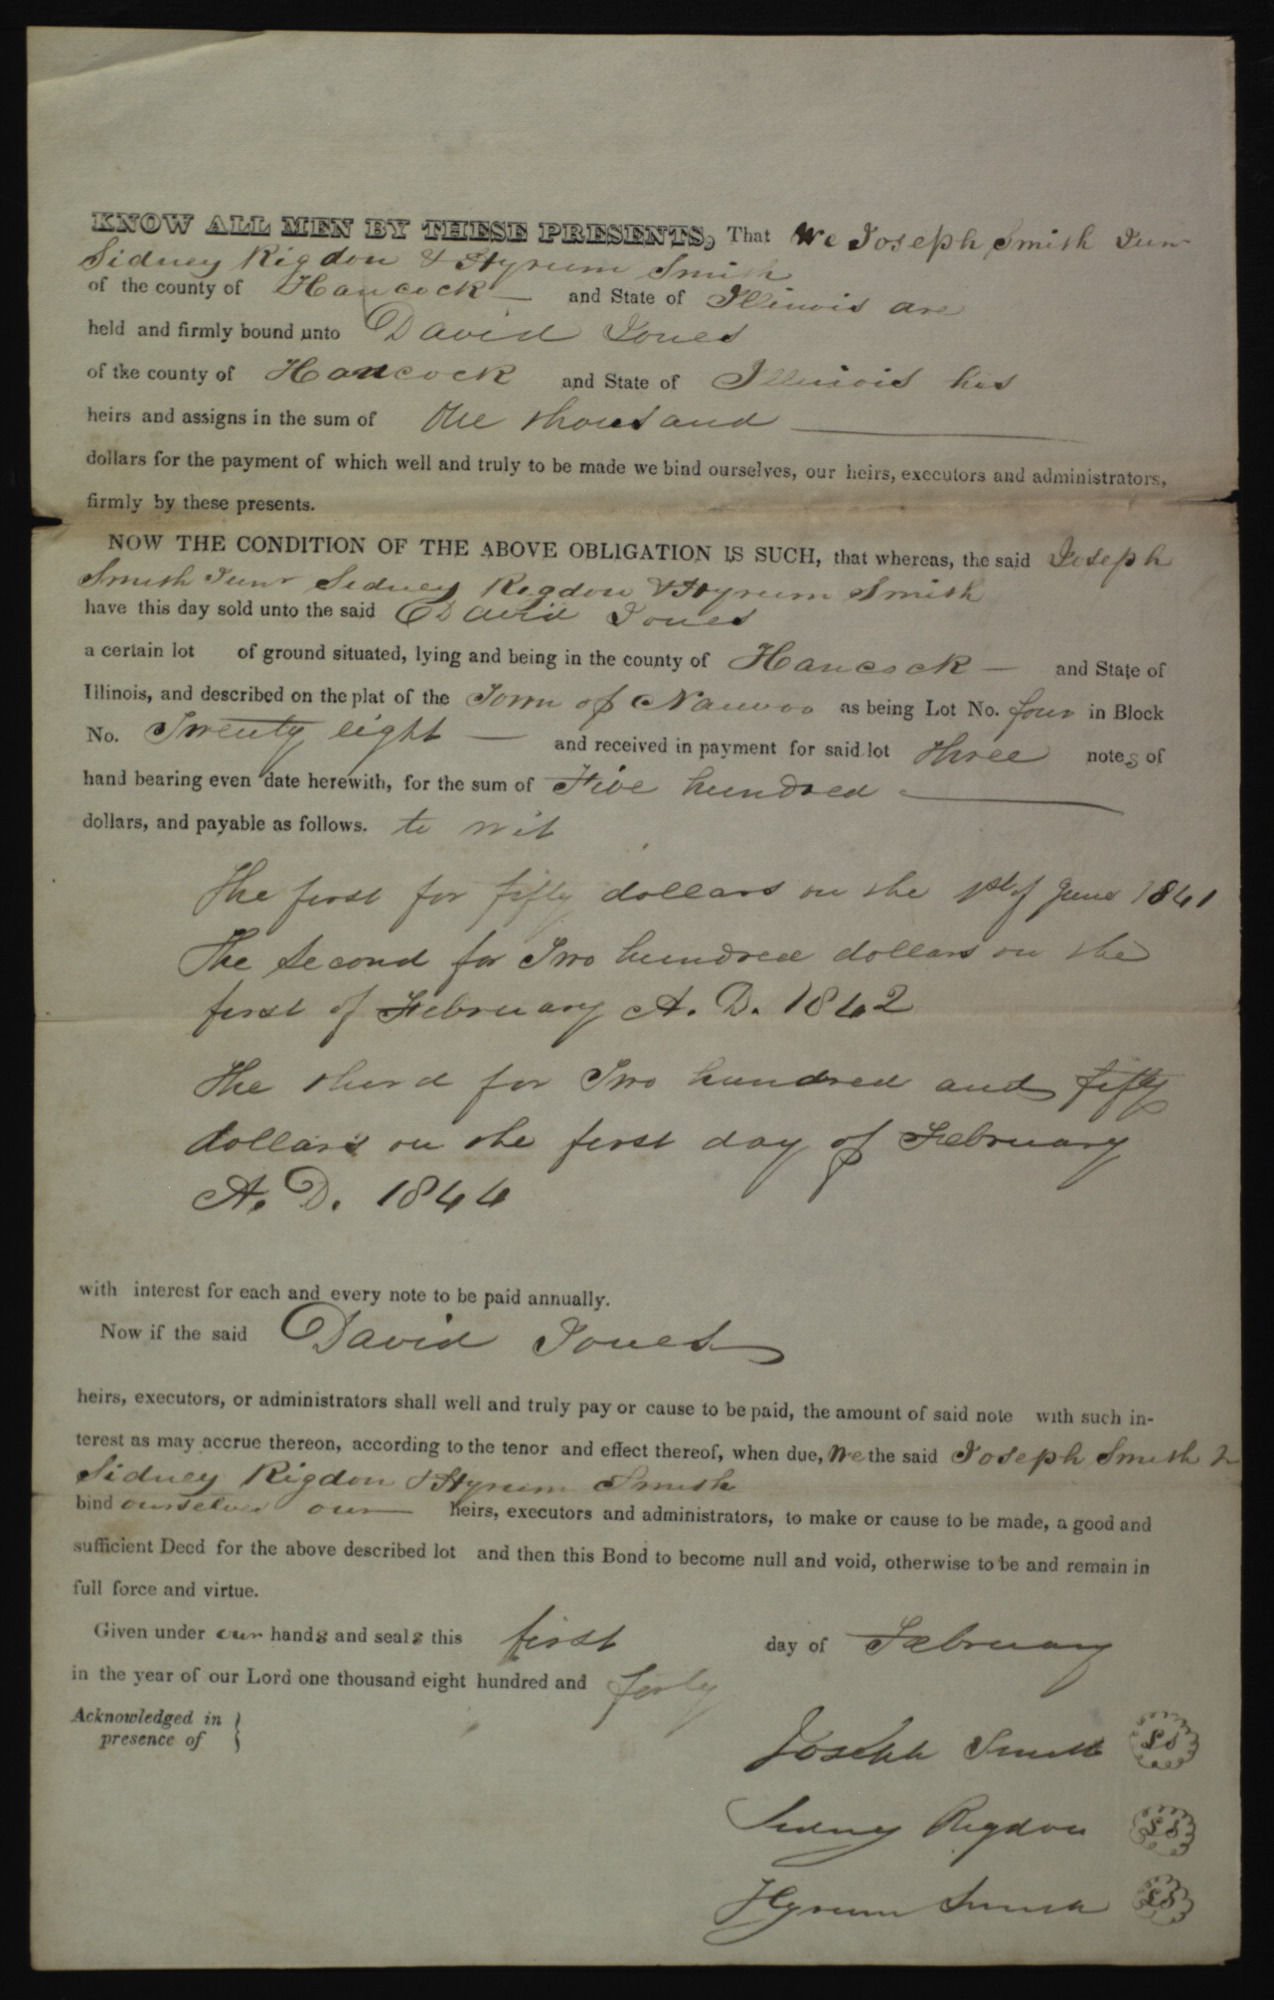 KNOW ALL MEN BY THESE PRESENTS, That We Joseph Smith Junr
Sidney Rigdon & Hyrum Smith
of the county of Hancock — and State of Illinois are
held and firmly bound unto David Jones
of tke county of Hancock and State of Illinois his
heirs and assigns in the sum of One thousand
dollars for the payment of which well and truly to be made we bind ourselves, our heirs, executors and administrators,
firmly by these presents.
NOW THE CONDITION OF THE ABOVE OBLIGATION IS SUCH, that whereas, the said Joseph
Smith Junr Sidney Rigdon & Hyrum Smith
have this day sold unto the said David Jones
a certain lot of ground situated, lying and being in the county of Hancock — and State of
Illinois, and described on the plat of the Town of Nauvoo as being Lot No. four in Block
No. Twenty eight — and received in payment for said lot three notes of
hand bearing even date herewith, for the sum of Five hundred
dollars, and payable as follows. to wit
The first for fifty dollars on the 1st of June 1841
The second for Two hundred dollars on the
first of February A. D. 1842
The third for Two hundred and fifty
dollars on the first day of February
A. D. 1844
with interest for each and every note to be paid annually.
Now if the said David Jones
heirs, executors, or administrators shall well and truly pay or cause to be paid, the amount of said note with such in-
terest as may accrue thereon, according to the tenor and effect thereof, when due, We the said Joseph Smith Jr
Sidney Rigdon & Hyrum Smith
bind ourselves our heirs, executors and administrators, to make or cause to be made, a good and
sufficient Deed for the above described lot and then this Bond to become null and void, otherwise to be and remain in
full force and virtue.
Given under our hands and seals this first day of February
in the year of our Lord one thousand eight hundred and forty
Acknowledged in }
presence of
Joseph Smith LS
Sidney Rigdon LS
Hyrum Smith LS